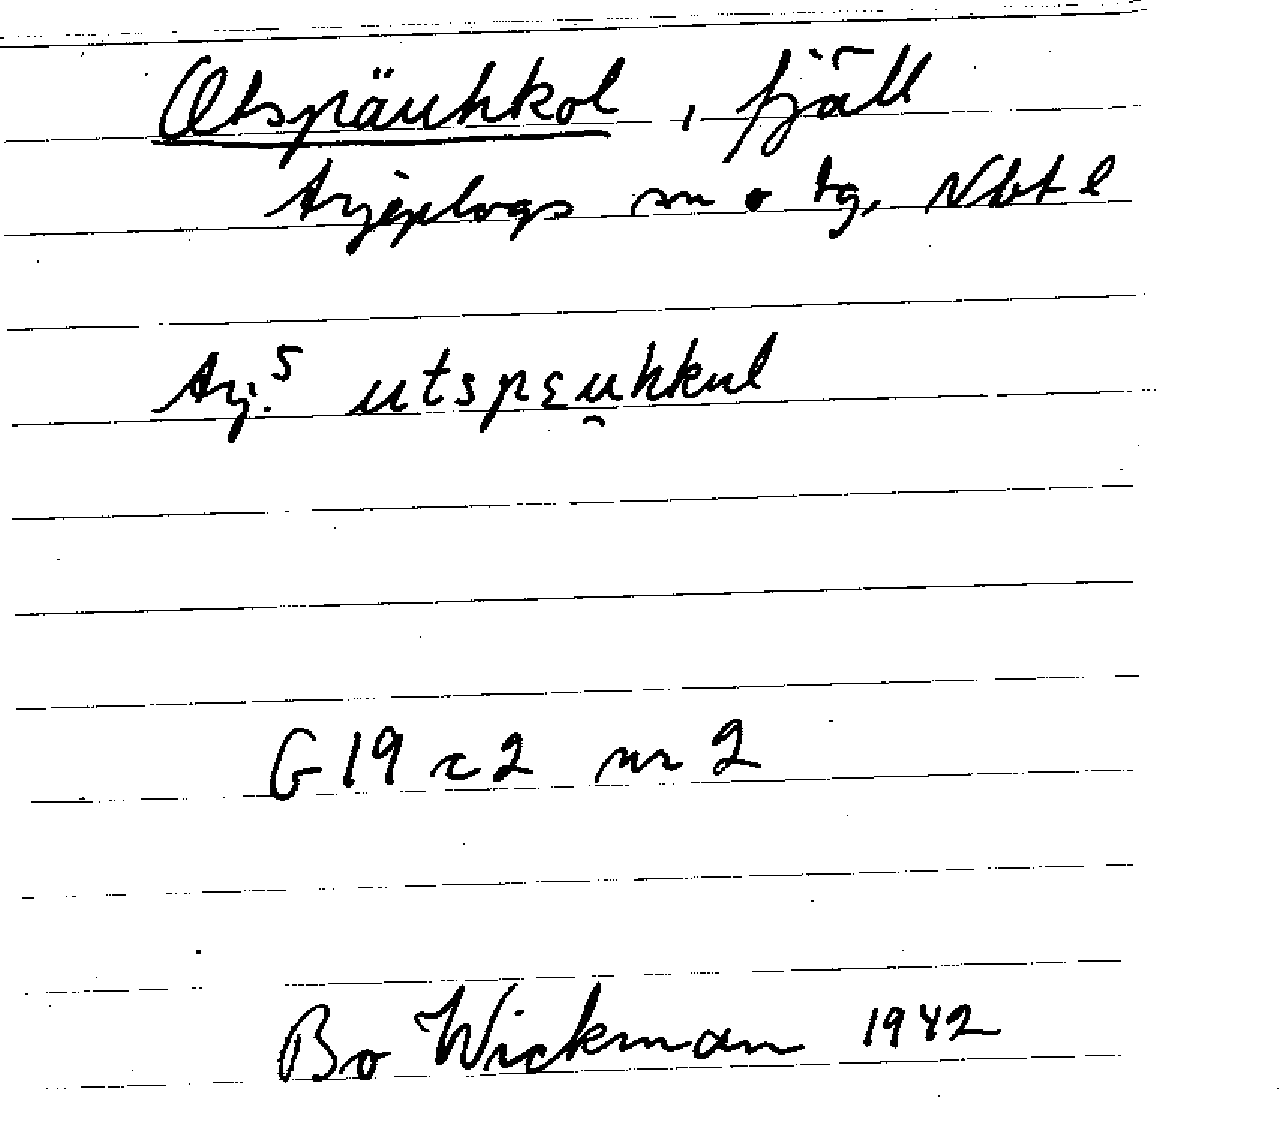 Otspäuhkol, fjäll
Arjeplogs sn o tg, Nbt l
Arj.S utspɛu̯hkul
G19 c2 nr 2
Bo Wickman 1942